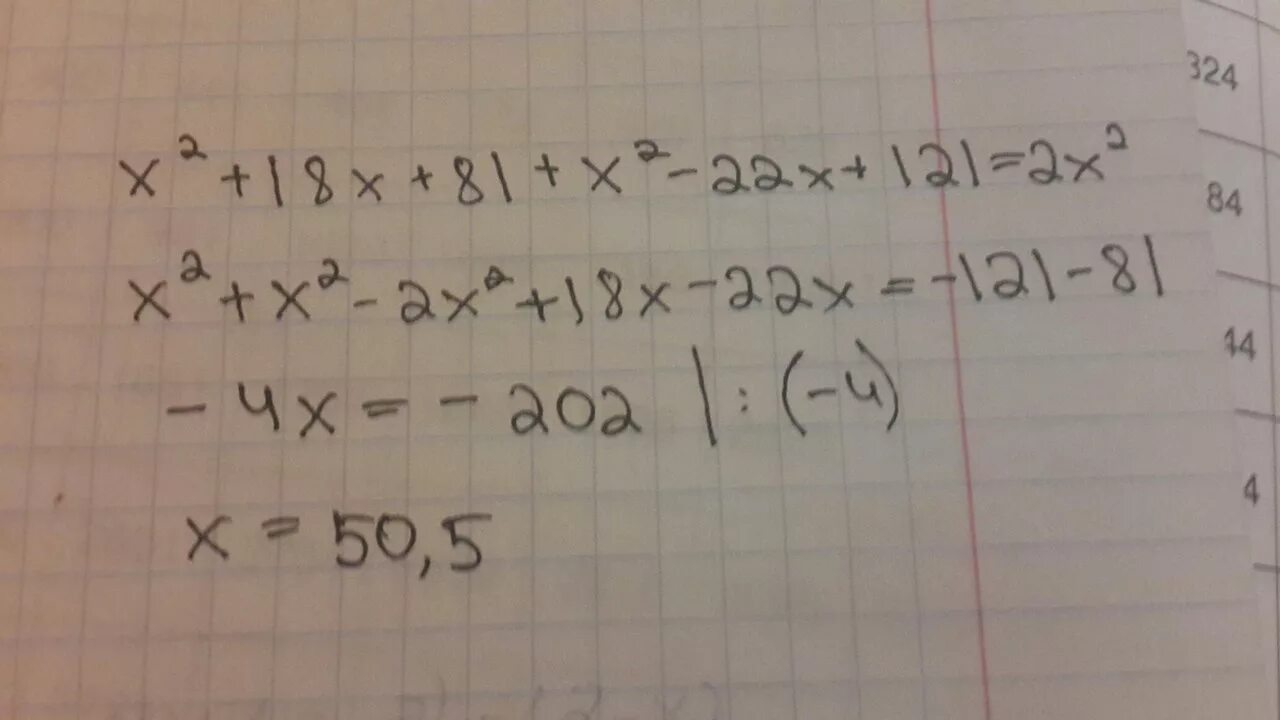 x² + 18x + 81 + x² - 22x + 121 = 2x²
x² + x² - 2x² + 18x - 22x = -121 - 81
- 4x = - 202 | : (-4)
x = 50,5
324
84
14
4